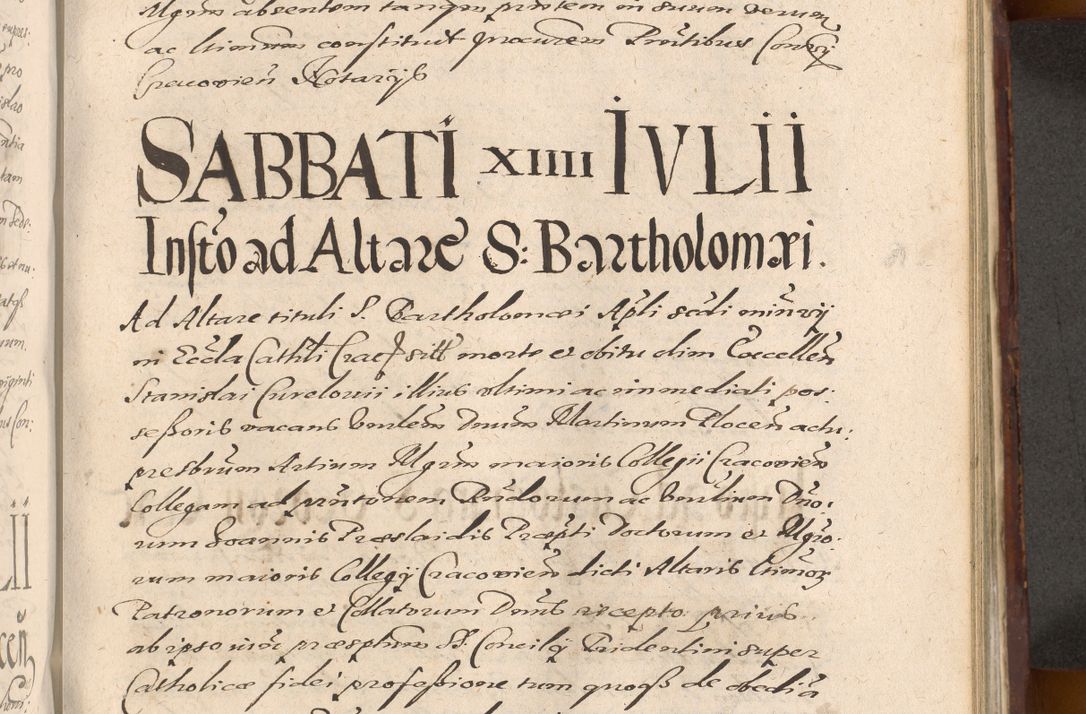 Mgrum absentem tanqm prntem in suum verum
ac ltimum constituit procurem Prntibus Consrij
Cracovien Notarijs
SABBATI XIIII IVLII
Insto ad Altare S: Bartholomæi.
Ad Altare tituli S. Bartholomæi Apli scdi minrij
in Eccla Cathli Crac sitt morte et obitu olim Excellen
Stanislai Curelovii illius ultimi ac immediati pos:
seßoris vacans Venlem Dnum Martinum Plocen actu:
presbrum Artium Mgrum maioris Collegij Cracovien
Collegam ad prntonem Rndorum ac Venlium Dno:
rum Joannis Præslaidis Præpti Doctorum et Mgro:
rum maioris Collegij Cracovien dicti Altaris ltimor
Patronorum et Collatorum Dnus recepto prius
ab ipso iux præscptum SS. Concilij Tridentini super
Catholicæ fidei profeßione tum quoqs de obedia